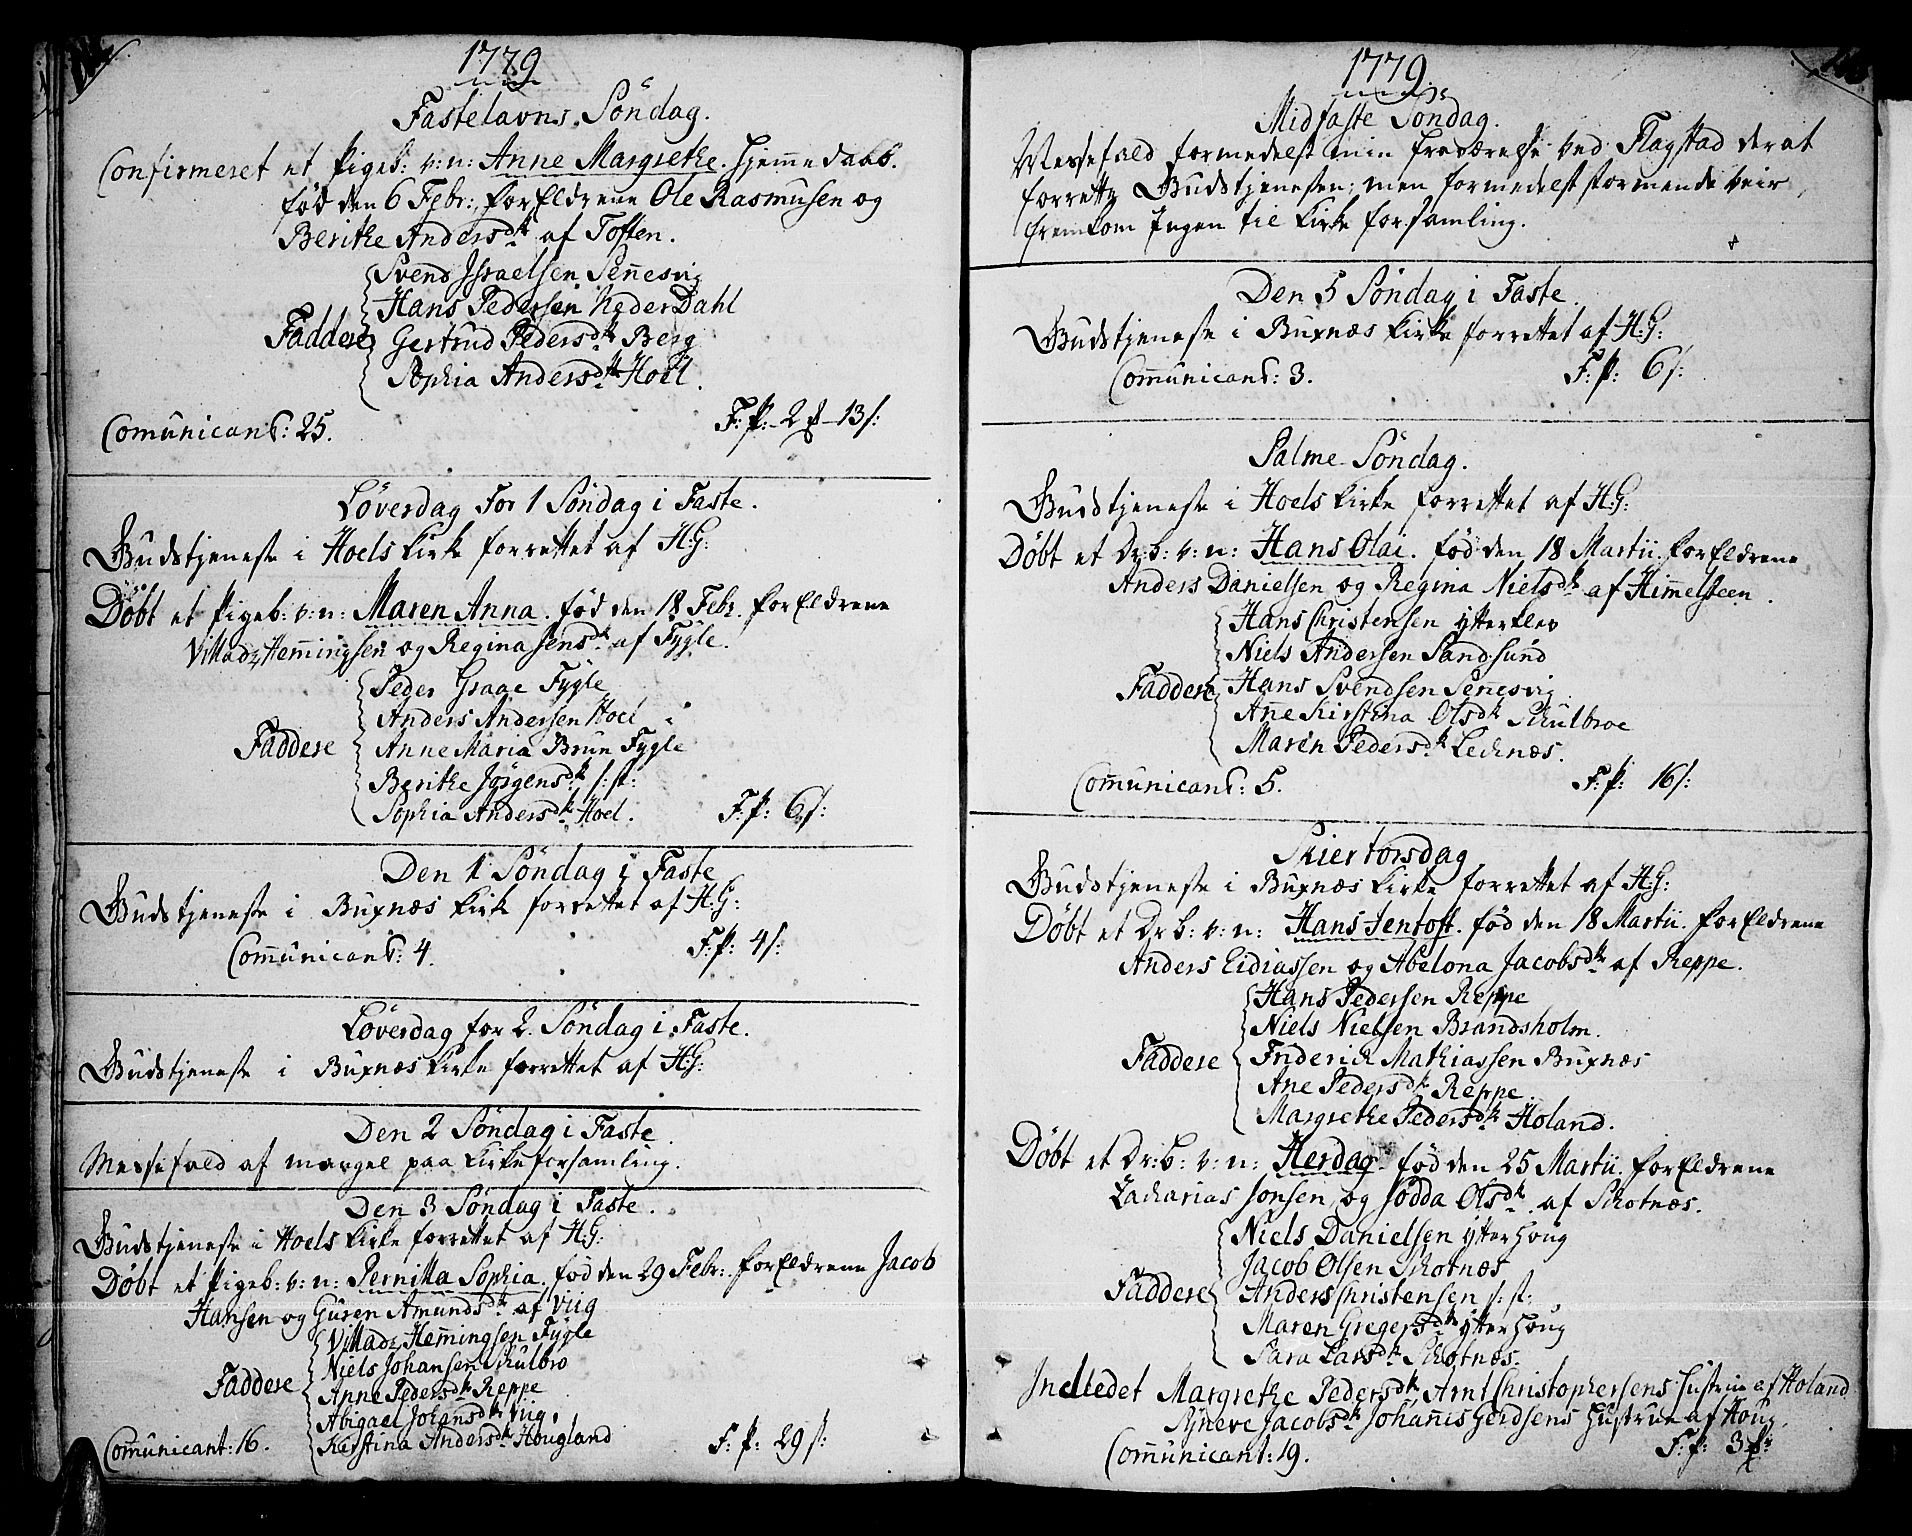 1779
Fastelavns Söndag.
Confirmeret et Pigeb: v: n: Anne Margrethe. Hjemmedaab.
fød den 6 Febr: forEldrene Ole Rasmusen og
Berithe Andersdtr af Toften.
Svend Israelsen Senesvig
Hans Pedersen NederDahl
Faddere Gertrud Pedersdtr Berg
Sophia Andersdtr Hoel.
Comunicant: 25. F: P: 2 13 s:
Løverdag For 1 Söndag i Faste.
Gudstjeneste i Hoels Kirke forrettet af H: G:
Döbt et Pigeb: v: n: Maren Anna. fød den 18 Febr. forEldrene
Villadz Hemingsen og Regina Jensdtr af Fygle.
Peder Graae Fygle
Anders Andersen Hoel
Faddere Anne Maria Brun Fygle
Berithe Jörgensdtr s: st:
Sophia Andersdtr Hoel. F: P: 6 s:
Den 1 Söndag i Faste
Gudstjeneste i Buxnæs Kirke forrettet af H: G:
Comunicant: 4. F: P: 4 s:
Løverdag for 2. Söndag i Faste.
Gudstjeneste i Buxnæs Kirke forrettet af H: G:
Den 2 Söndag i Faste.
Messefald af mangel paa Kirkeforsamling.
Den 3 Söndag i Faste.
Gudstjeneste i Hoels Kirke forrettet af H: G:
Döbt et Pigeb: v: n: Pernilla Sophia. fød den 29 Febr: forEldrene Jacob
Hansen og Guren Amundsdtr af Viig
Villadz Hemingsen Fygle
Niels Johansen Skulbro
Faddere Anne Pedersdtr Reppe
Abigael Johansdtr Viig.
Comunicant: 16. Kirstina Andersdtr Hougland F: P: 29 s:
1779.
Midfaste Söndag.
Messefald formedelst min fraværelse ved Flagstad der at
forrette Gudstjenesten; men formedelst stormende Veir
fremkom Ingen til Kirke forsamling.
Den 5 Söndag i Faste.
Gudstjeneste i Buxnæs Kirke forrettet af H: G:
Comunicant: 3. F: P: 6 s:
Palme Söndag.
Gudstjeneste i Hoels Kirke forrettet af H: G:
Döbt et Dr.b: v: n: Hans Olai. fød den 18 Martii. forEldrene
Anders Danielsen og Regina Nielsdtr af Himelsteen.
Hans Christensen Ytterklev
Niels Andersen Sandsund
Faddere Hans Svendsen Senesvig
Ane Kirstina Olsdtr Skulbroe
Maren Pedersdtr Lechnæs.
Comunicant: 5. F: P: 16 s:
Skiertorsdag
Gudstjeneste i Buxnæs Kirke forrettet af H: G:
Döbt et Dr b: v: n: Hans Jentoft. fød den 18 Martii. forEldrene
Anders Eidiassen og Abelona Jacobsdtr af Reppe.
Hans Pedersen Reppe
Niels Nielsen Brandsholm.
Faddere Friderich Mathiassen Buxnæs
Ane Pedersdtr Reppe
Margrethe Pedersdtr Holand.
Döbt et Dr: b: v: n: Herdag. fød den 25 Martii. forEldrene
Zacharias Jonsen og Södda Olsdtr. af Skotnæs.
Niels Danielsen Ytterhoug
Jacob Olsen Skotnæs
Faddere Anders Christensen s: st:
Maren Gregersdtr Ytterhoug
Sara Larsdtr Skotnæs.
Indledet Margrethe Pedersdtr Arnt Christophersens Hustrue af Holand
Syneve Jacobsdtr Johannis Gerdsens Hustrue af Houg.
Comunicant: 19. F: P: 3